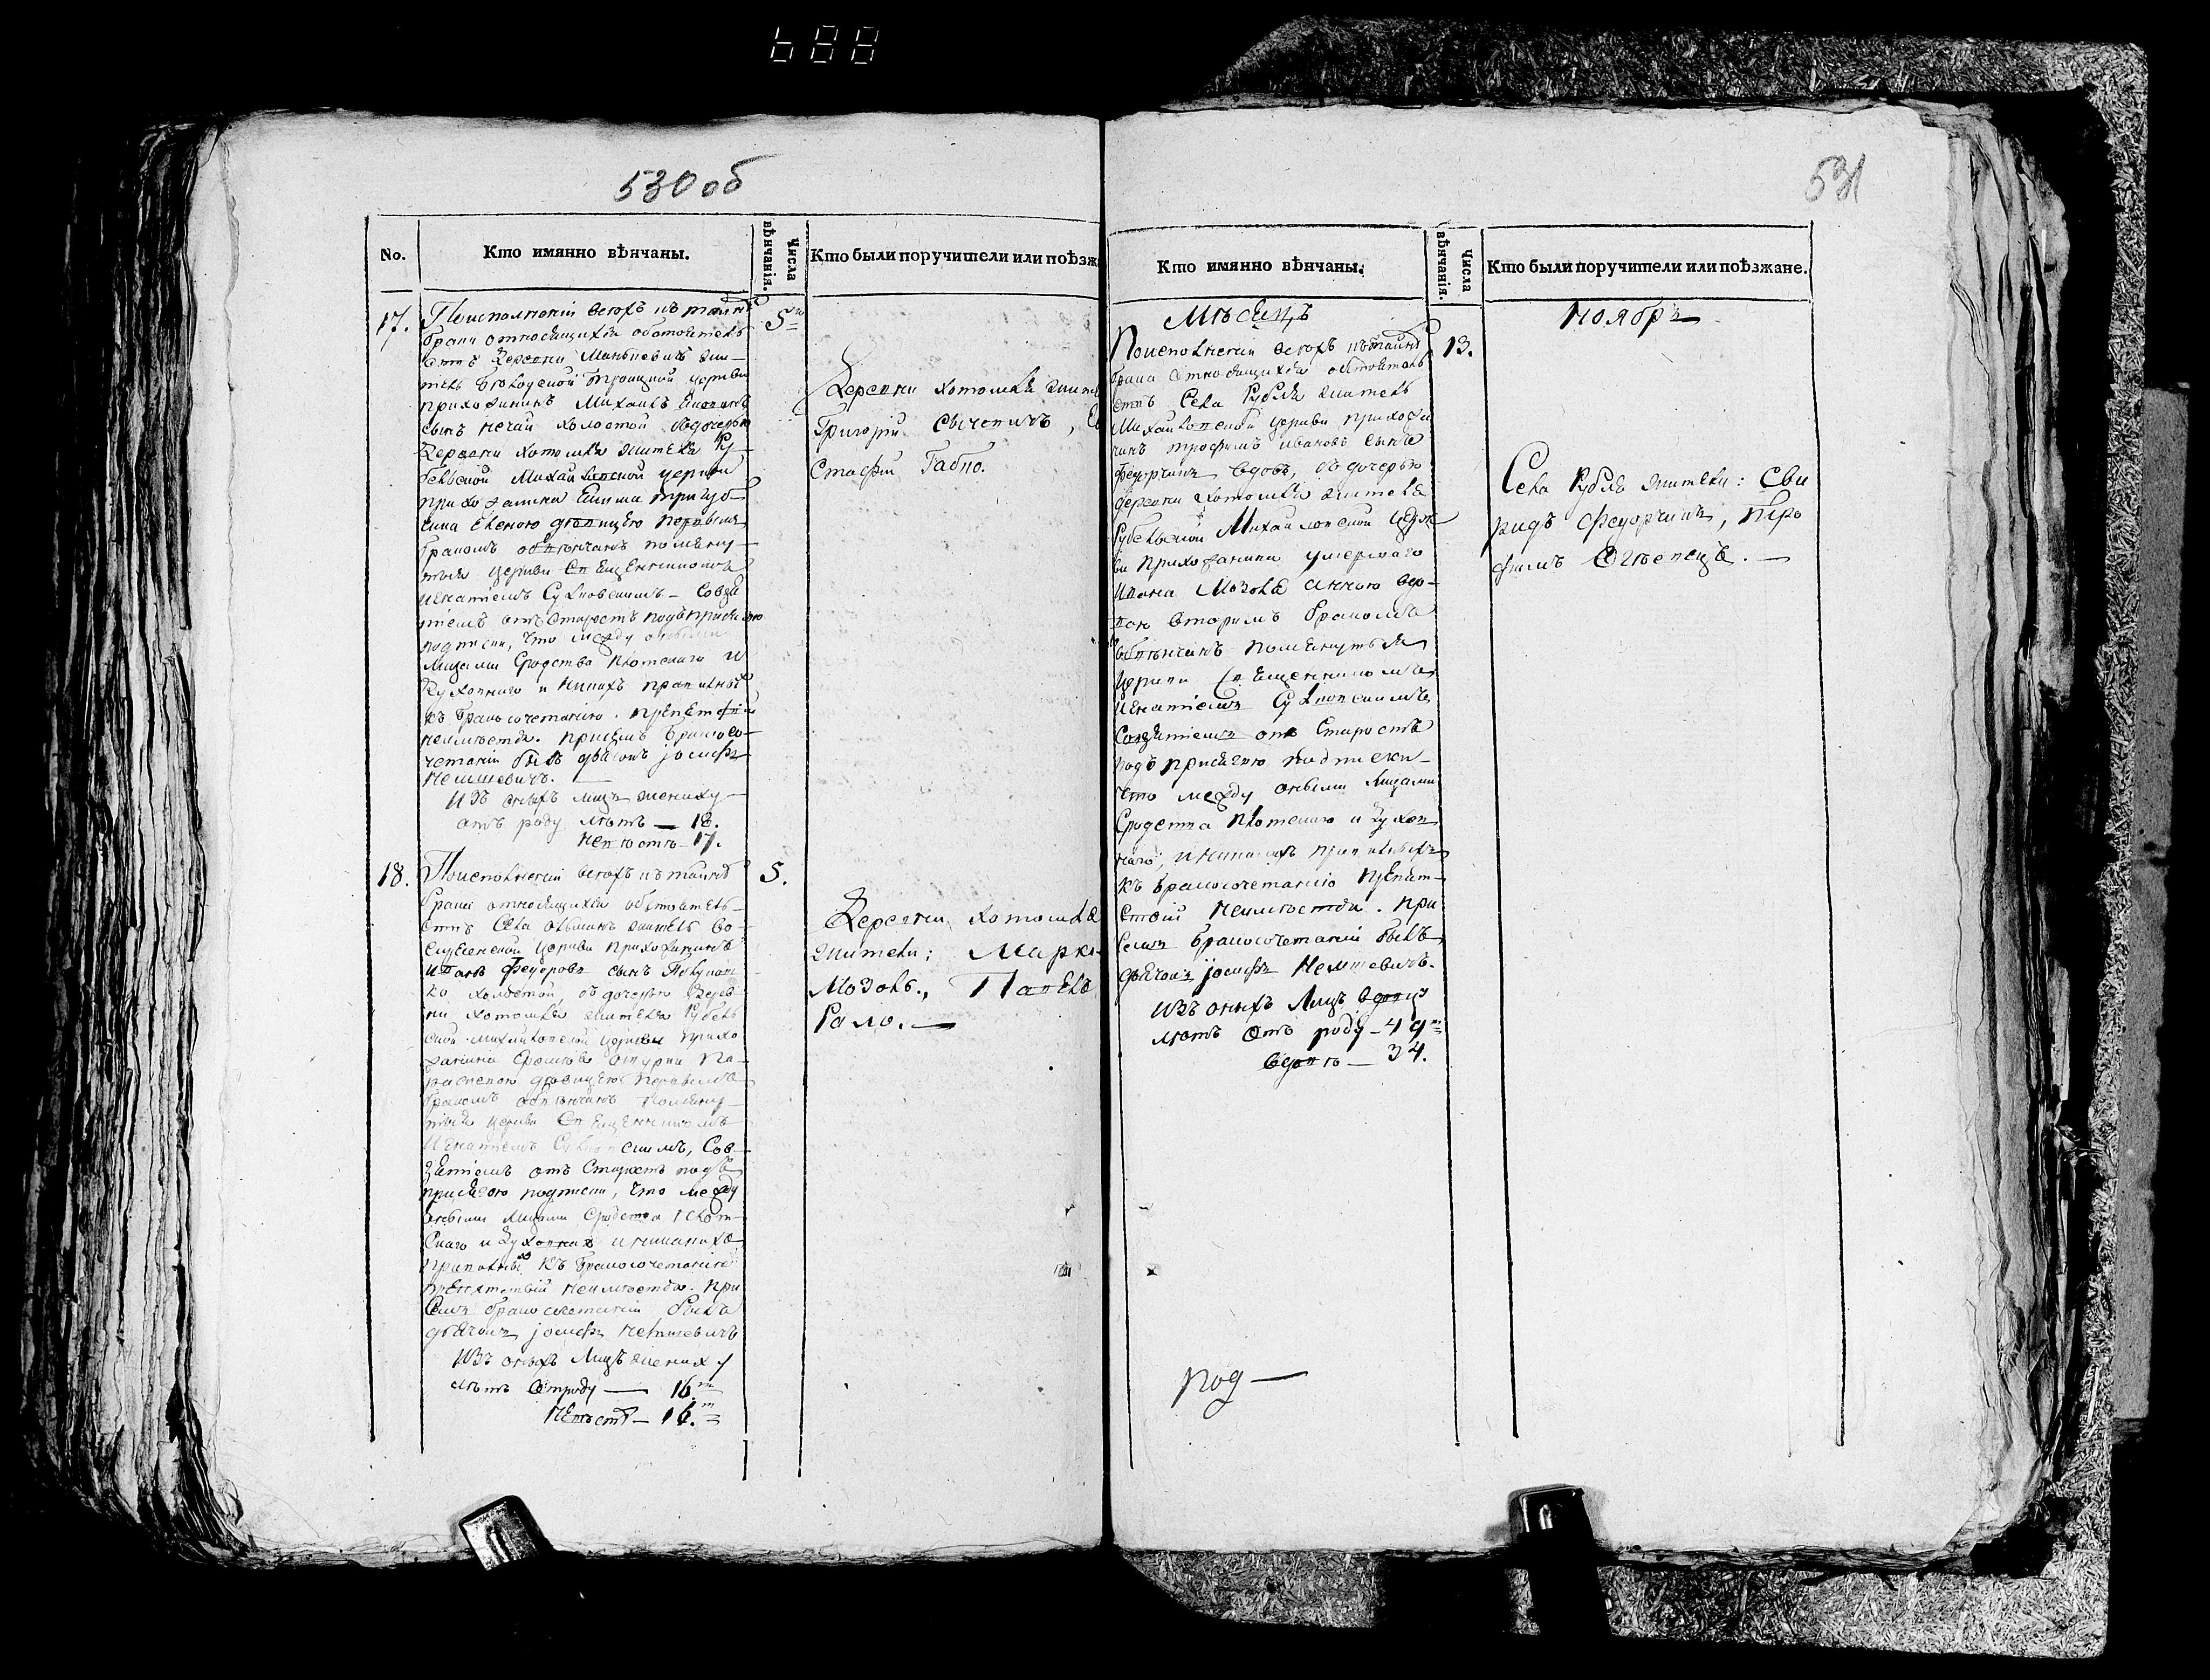 688
530 об
No.
Кто имянно вѣнчаны.
Числа вѣнчанія.
Кто были поручители или поѣзж
17.
Поисполненіи всѣхъ къ таинст
брака относящихся обстоятель
ствъ Деревни жи-
тель Троицкой церкви
прихожанинъ Михаилъ
сынъ Нечай холостой съ дочерью
Деревни Хотомля жителя Ру
бельской Михайловской церкви
прихожанина
дѣвицею первымъ
бракомъ обвѣнчанъ помяну-
тыя церкви Священникомъ
Игнатіемъ Сулковскимъ - Совзя
тіемъ отъ Старостъ подъ присягою
подписки, что между оными
Лицами Сродства Плотскаго и
Духовнаго и Никакихъ правильных
къ бракосочетанію препятствій
неимѣется. присемъ бракосо-
четаніи былъ дьячокъ Іосифъ
Немшевичъ.
Изъ оныхъ лицъ жениху
отъ роду лѣтъ — 18.
Невѣстѣ - 17.
5го
Деревни Хотомля жите
Григорій Сычевичъ, Ев
стафій Габко.
18.
Поисполненіи всѣхъ къ таинст
брака относящихся обстоятель-
ствъ Села Ольманъ житель Во-
скресенской церкви Прихожанинъ
Иванъ Федоровъ сынъ
ко холостой, съ дочерью Дерев
ни Хотомля жителя Рубель
ской Михайловской церкви прихо
жанина Па-
раскевою дѣвицею первымъ
бракомъ обвѣнчанъ Помяну-
тыя церкви Священникомъ
Игнатіемъ Сулковскимъ, Сов
зятіемъ отъ Старостъ подъ
присягою подписки, что между
оными Лицами Сродства Плот-
скаго и Духовнаго и никакихъ
правильных къ бракосочетанію
препятствій неимѣется. При
семъ бракосочетаніи былъ
дьячокъ Іосифъ Немшевичъ
Изъ оныхъ Лицъ жениху
лѣтъ отроду — 16.
Невѣстѣ — 16.
5.
Деревни Хотомля
жители: Марко
Мозоль., Павелъ
Рало. —
531
Кто имянно вѣнчаны.
Числа вѣнчанія.
Кто были поручители или поѣзжане.
Мѣсяцъ
Ноябрь
Поисполненіи всѣхъ къ таинст
брака относящихся обстоятель
ствъ Села Рубля житель
Михайловской церкви прихожа
нинъ Трофимъ Ивановъ сынъ
Федорчукъ вдовъ, съ дочерью
деревни Хотомля жителя
Рубельской Михайловской церк
ви прихожанина умершаго
Ивана Мозоля Анною вдо-
вою вторымъ бракомъ
обвѣнчанъ помянутыя
церкви Священникомъ
Игнатіемъ Сулковскимъ
Совзятіемъ отъ Старостъ
подъ присягою подписки
что между оными Лицами
Сродства Плотскаго и Духов
наго, и никакихъ правильныхъ
къ бракосочетанію препят-
ствій неимѣется. При
семъ бракосочетаніи былъ
дьячокъ Іосифъ Немшевичъ.
Изъ оныхъ Лицъ вдовцу
лѣтъ отъ роду — 49
вдовѣ — 34.
13.
Села Рубля жители: Сви
ридъ Федорчукъ, Тро
фимъ —
род —